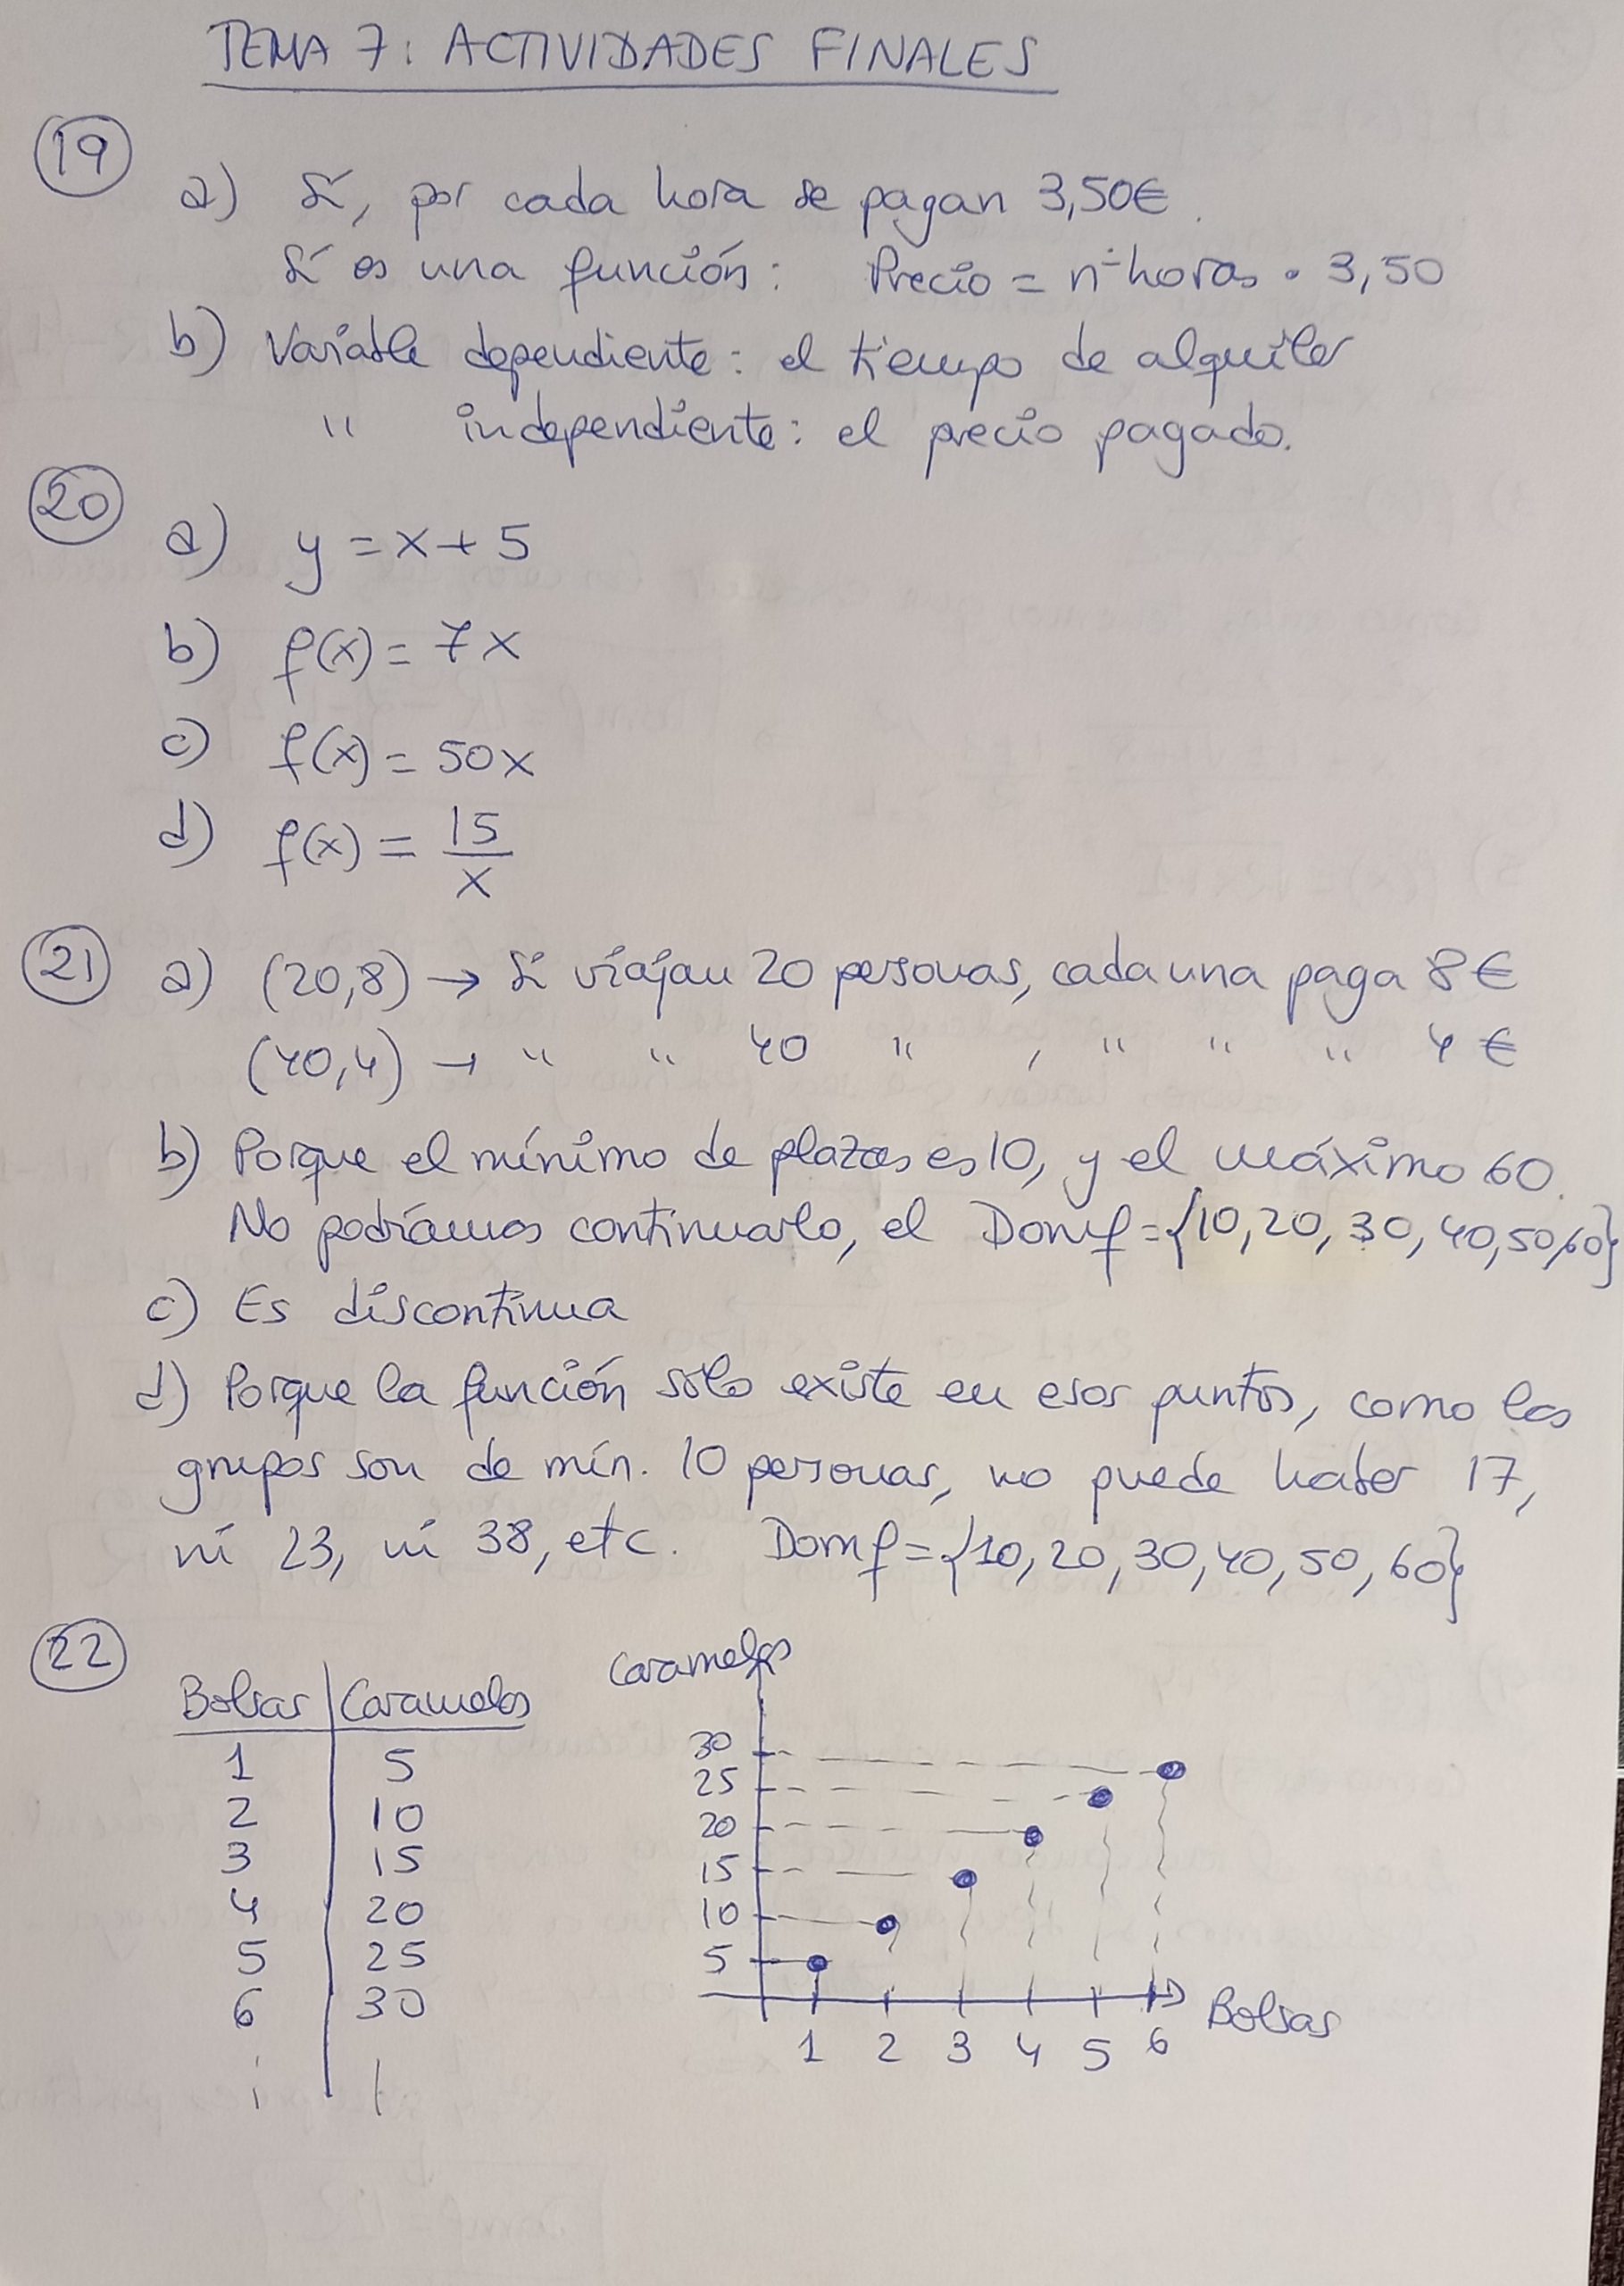 TEMA 7: ACTIVIDADES FINALES
19
a) Sí, por cada hora se pagan 3,50€.
Sí es una función: Precio = nº horas · 3,50
b) Variable dependiente: el tiempo de alquiler
" independiente: el precio pagado.
20
a) y = x + 5
b) f(x) = 7x
c) f(x) = 50x
d) f(x) = 15/x
21 a) (20,8) → Si viajan 20 personas, cada una paga 8€
(40,4) → " " 40 " , " " " 4 €
b) Porque el mínimo de plazas es 10, y el máximo 60.
No podríamos continuarlo, el Domf = {10, 20, 30, 40, 50, 60}
c) Es discontinua
d) Porque la función sólo existe en esos puntos, como los
grupos son de mín. 10 personas, no puede haber 17,
ni 23, ni 38, etc. Domf = {10, 20, 30, 40, 50, 60}
22
Bolsas | Caramelos
1 5
2 10
3 15
4 20
5 25
6 30
Caramelos
30
25
20
15
10
5
1 2 3 4 5 6 Bolsas